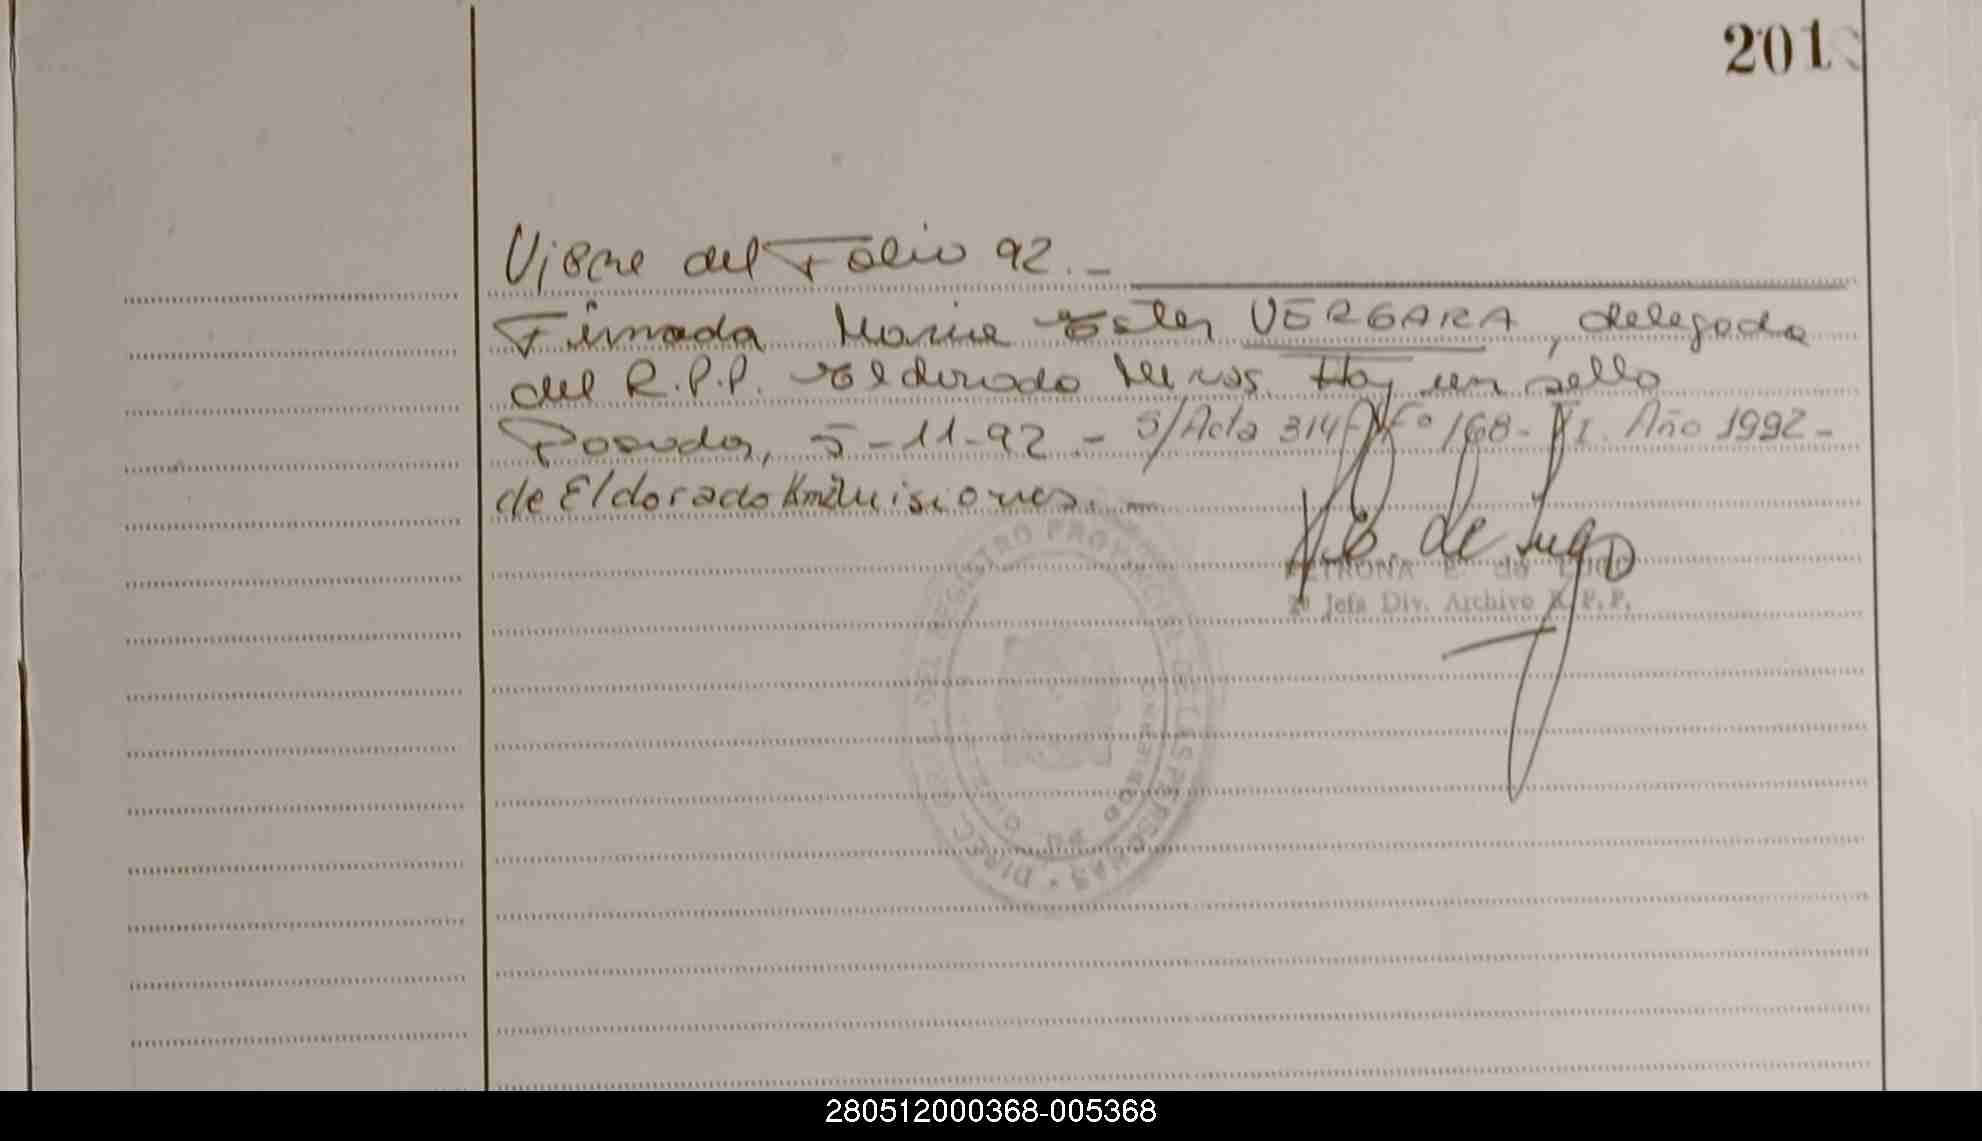 201
Viene del Folio 92.-
Firmada Maria Ester VERGARA, delegada
del R.P.P. Eldorado Mnes. Hay un sello
Posadas, 5-11-92.- S/Acta 314- Fº 168- TI. Año 1992-
de Eldorado Km2 Misiones.-
P.E. de Lugo
PETRONA E de LUGO
2º Jefa Div. Archivo R.P.P.
DIREC. GRAL. DEL REGISTRO PROVINCIAL DE LAS PERSONAS
GOBIERNO
280512000368-005368